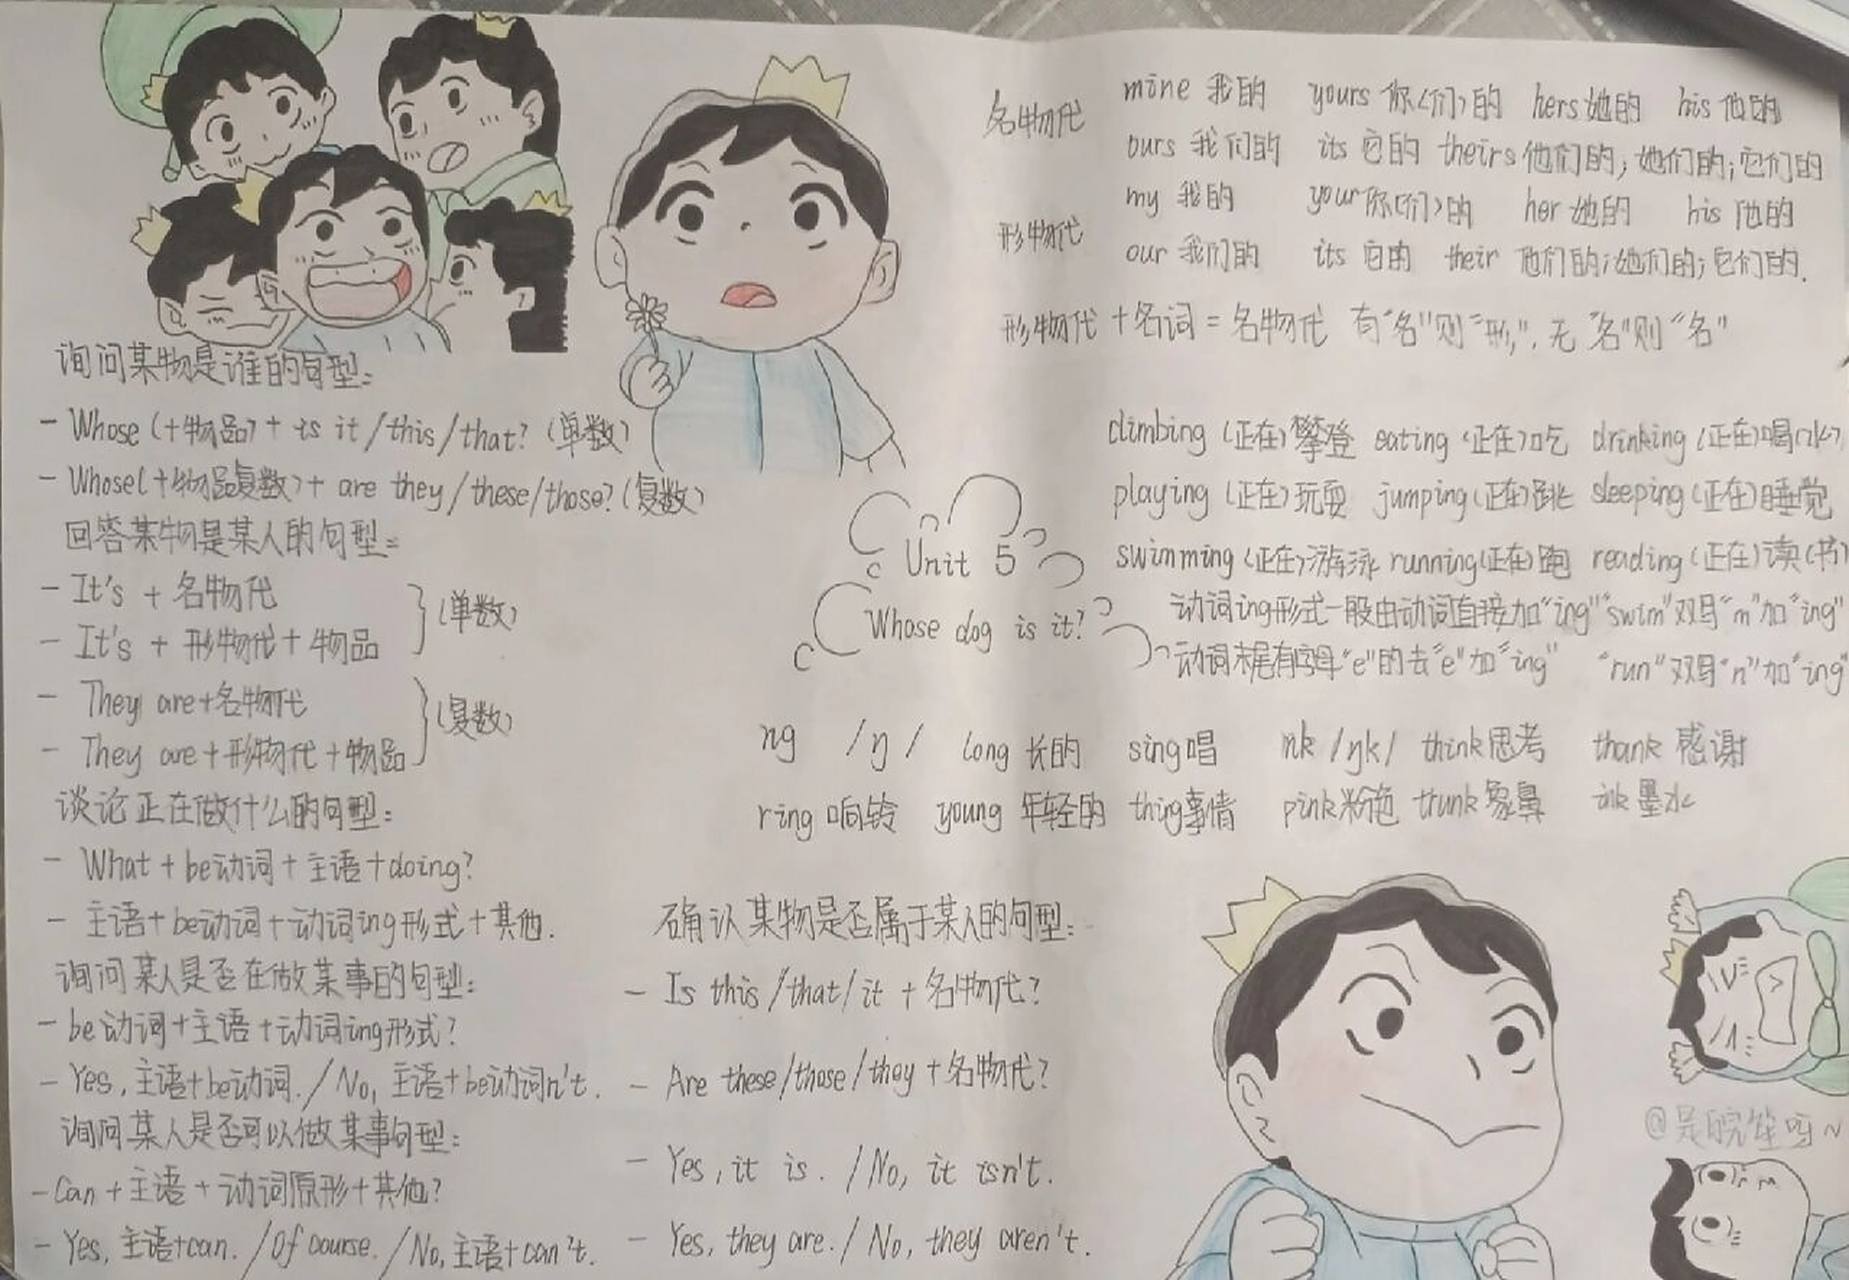 名物代 mine 我的 yours 你(们)的 hers 她的 his 他的
ours 我们的 its 它的 theirs 他们的;她们的;它们的
形物代 my 我的 your 你(们)的 her 她的 his 他的
our 我们的 its 它的 their 他们的;她们的;它们的.
形物代+名词=名物代 有"名"则"形",无"名"则"名"
询问某物是谁的句型:
- Whose (+物品)+ is it/this/that? (单数)
- Whose(+物品复数)+ are they/these/those?(复数)
回答某物是某人的句型:
- It's + 名物代
- It's + 形物代+物品
(单数)
- They are+名物代
- They are+形物代+物品
(复数)
谈论正在做什么的句型:
- What+be动词+主语+doing?
- 主语+be动词+动词ing形式+其他.
询问某人是否在做某事的句型:
- be动词+主语+动词ing形式?
- Yes,主语+be动词./No,主语+be动词n't.
询问某人是否可以做某事句型:
- Can+主语+动词原形+其他?
- Yes,主语+can./Of course./No,主语+can't.
Unit 5
Whose dog is it?
climbing (正在)攀登 eating (正在)吃 drinking (正在)喝(水)
playing (正在)玩耍 jumping(正在)跳 sleeping(正在)睡觉
swimming (正在)游泳 running(正在)跑 reading(正在)读(书)
动词ing形式一般由动词直接加"ing" "swim"双写"m"加"ing"
动词末尾有字母"e"的去"e"加"ing" "run"双写"n"加"ing"
ng /ŋ/ long 长的 sing唱 nk /ŋk/ think思考 thank 感谢
ring 响铃 young 年轻的 thing事情 pink粉色 trunk象鼻 ink墨水
确认某物是否属于某人的句型:
- Is this/that/it +名物代?
- Are these/those/they+名物代?
- Yes,it is./No, it isn't.
- Yes, they are./ No, they aren't.